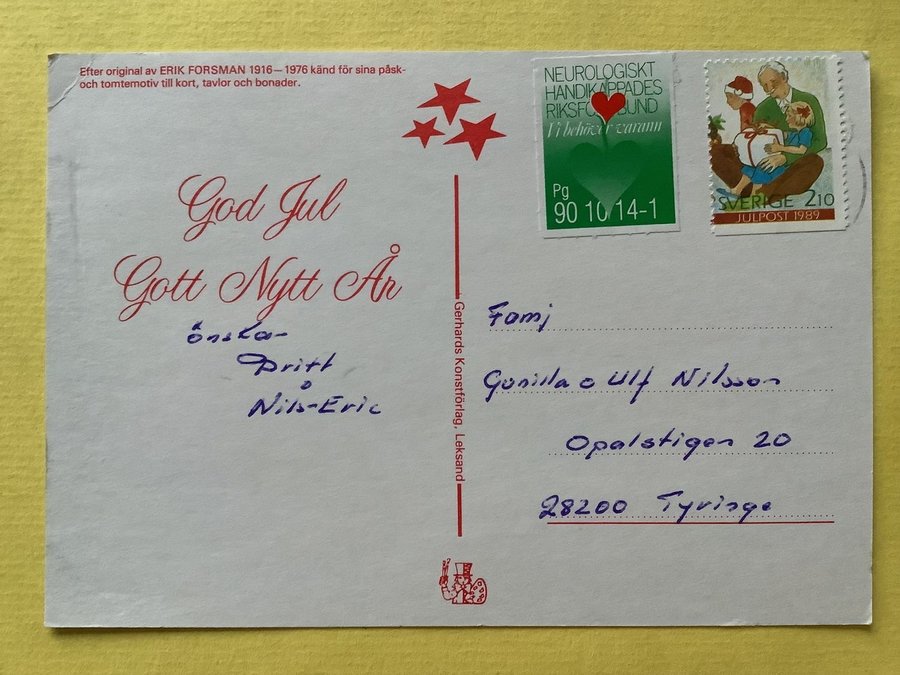 Efter original av ERIK FORSMAN 1916–1976 känd för sina påsk-
och tomtemotiv till kort, tavlor och bonader.
God Jul
Gott Nytt År
önska-
Britt
o
Nils-Eric
Gerhards Konstförlag, Leksand
NEUROLOGISKT
HANDIKAPPADES
RIKSFÖRBUND
Vi behöver varann
Pg
90 10 14-1
SVERIGE 2,10
JULPOST 1989
Famj
Gunilla o Ulf Nilsson
Opalstigen 20
28200 Tyringe